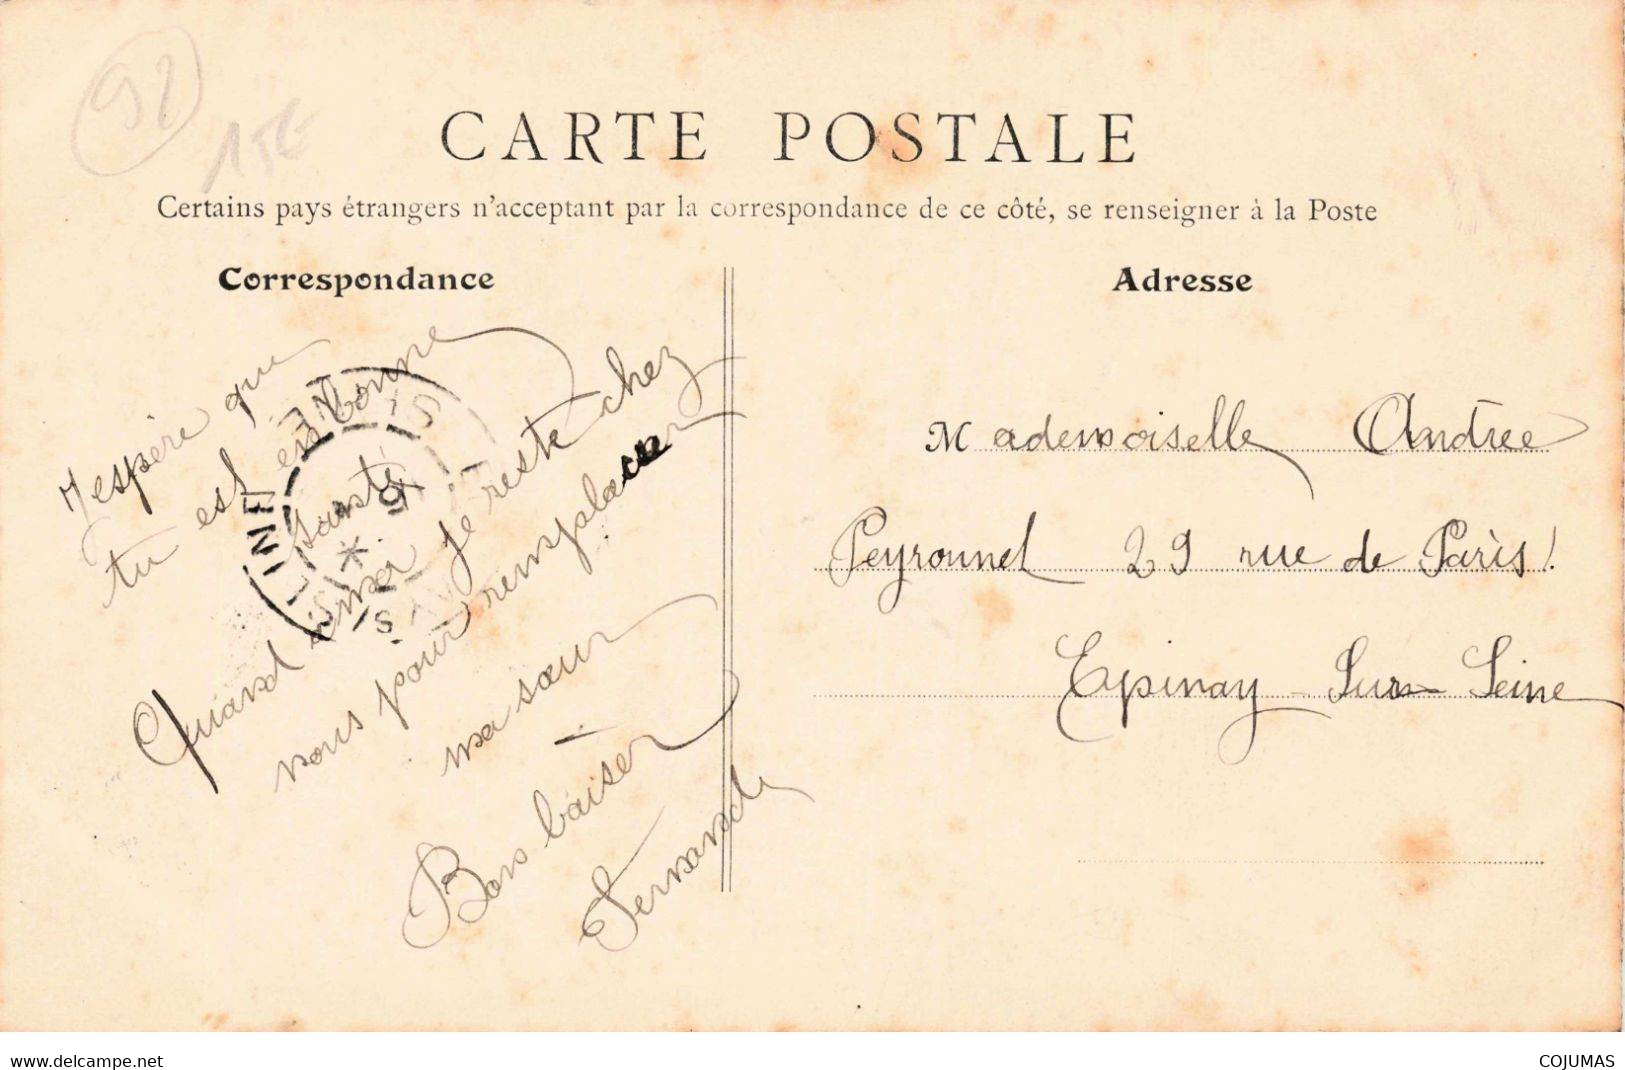 92
15€
CARTE POSTALE
Certains pays étrangers n'acceptant par la correspondance de ce côté, se renseigner à la Poste
Correspondance
J'espère que
tu est en bonne
santé
Quand a moi je reste chez
nous pour remplacer
ma sœur
Bons baiser
Fernande
Adresse
Mademoiselle Andree
Peyronnel 29 rue de Paris
Epinay - Sur - Seine
www.delcampe.net
COJUMAS